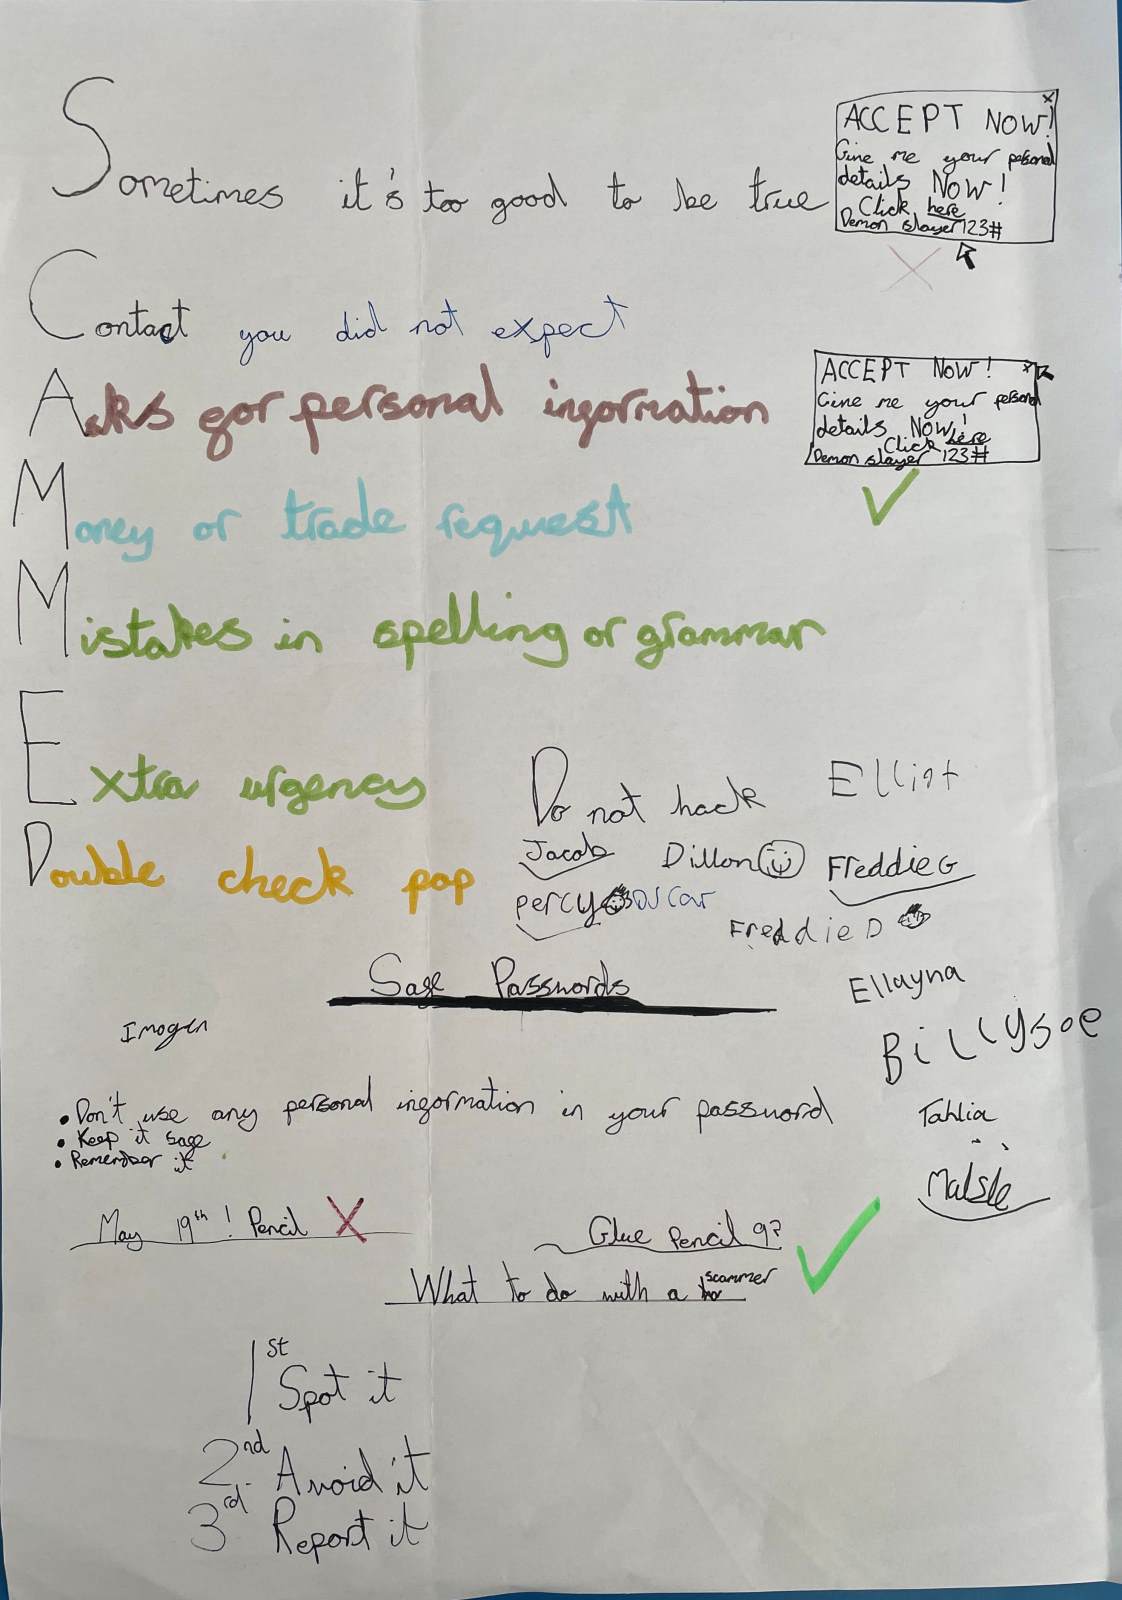 Sometimes it's too good to be true
ACCEPT NOW!
x
Give me your personal
details NOW!
Click here
Demon slayer 123#
Contact you did not expect
Asks for personal information
ACCEPT NOW!
x
Give me your personal
details NOW!
Click here
Demon slayer 123#
Money or trade request
Mistakes in spelling or grammar
Extra urgency
Double check pop
Do not hack
Elliot
Jacob
Dillon
Freddie G
percy
Oscar
Freddie D
Safe Passwords
Ellayna
Imogen
Billyjoe
• Don't use any personal information in your password
• Keep it safe
• Remember it
Tahlia
Maisie
May 19th! Pencil X
Glue Pencil 9?
What to do with a scammer
1st Spot it
2nd Avoid it
3rd Report it